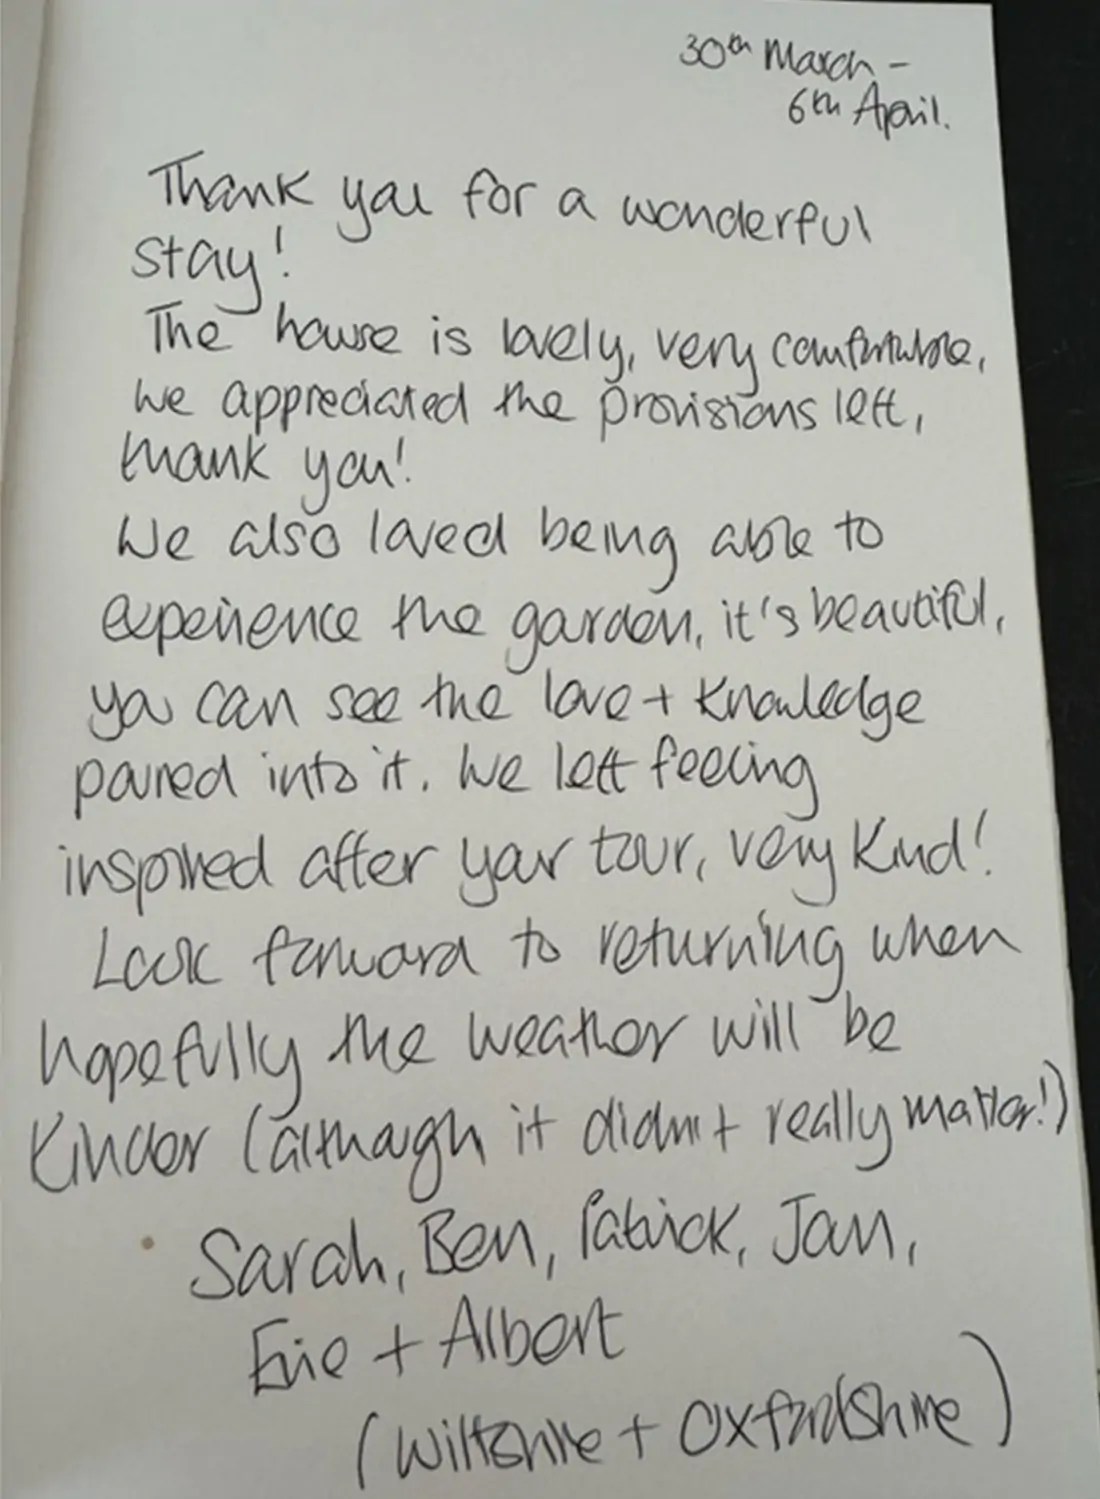 30th March -
6th April.
Thank you for a wonderful
stay!
The house is lovely, very comfortable,
we appreciated the provisions left,
thank you!
We also loved being able to
experience the garden, it's beautiful,
you can see the love + knowledge
poured into it. We left feeling
inspired after your tour, very kind!
Look forward to returning when
hopefully the weather will be
kinder (although it didn't really matter!)
Sarah, Ben, Patrick, Jan,
Evie + Albert
(Wiltshire + Oxfordshire)